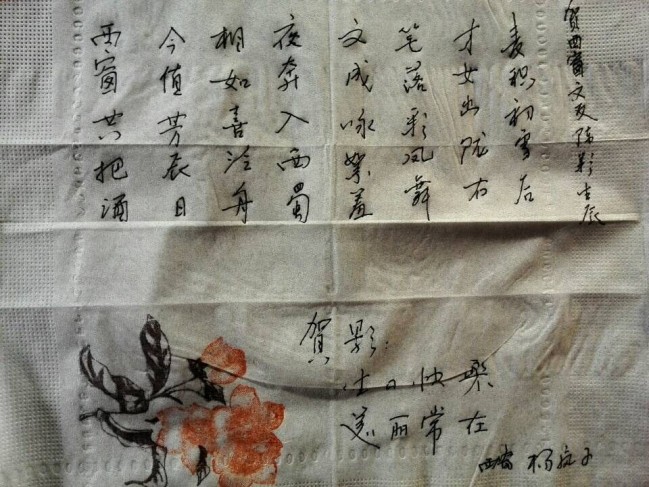 贺西窗文友陈影生辰
麦积初雪后
才女出陇右
笔落彩凤舞
文成咏絮羞
夜奔入西蜀
相如喜泛舟
今值芳辰日
西窗共把酒
賀影：
生日快樂
美丽常在
西窗 杨